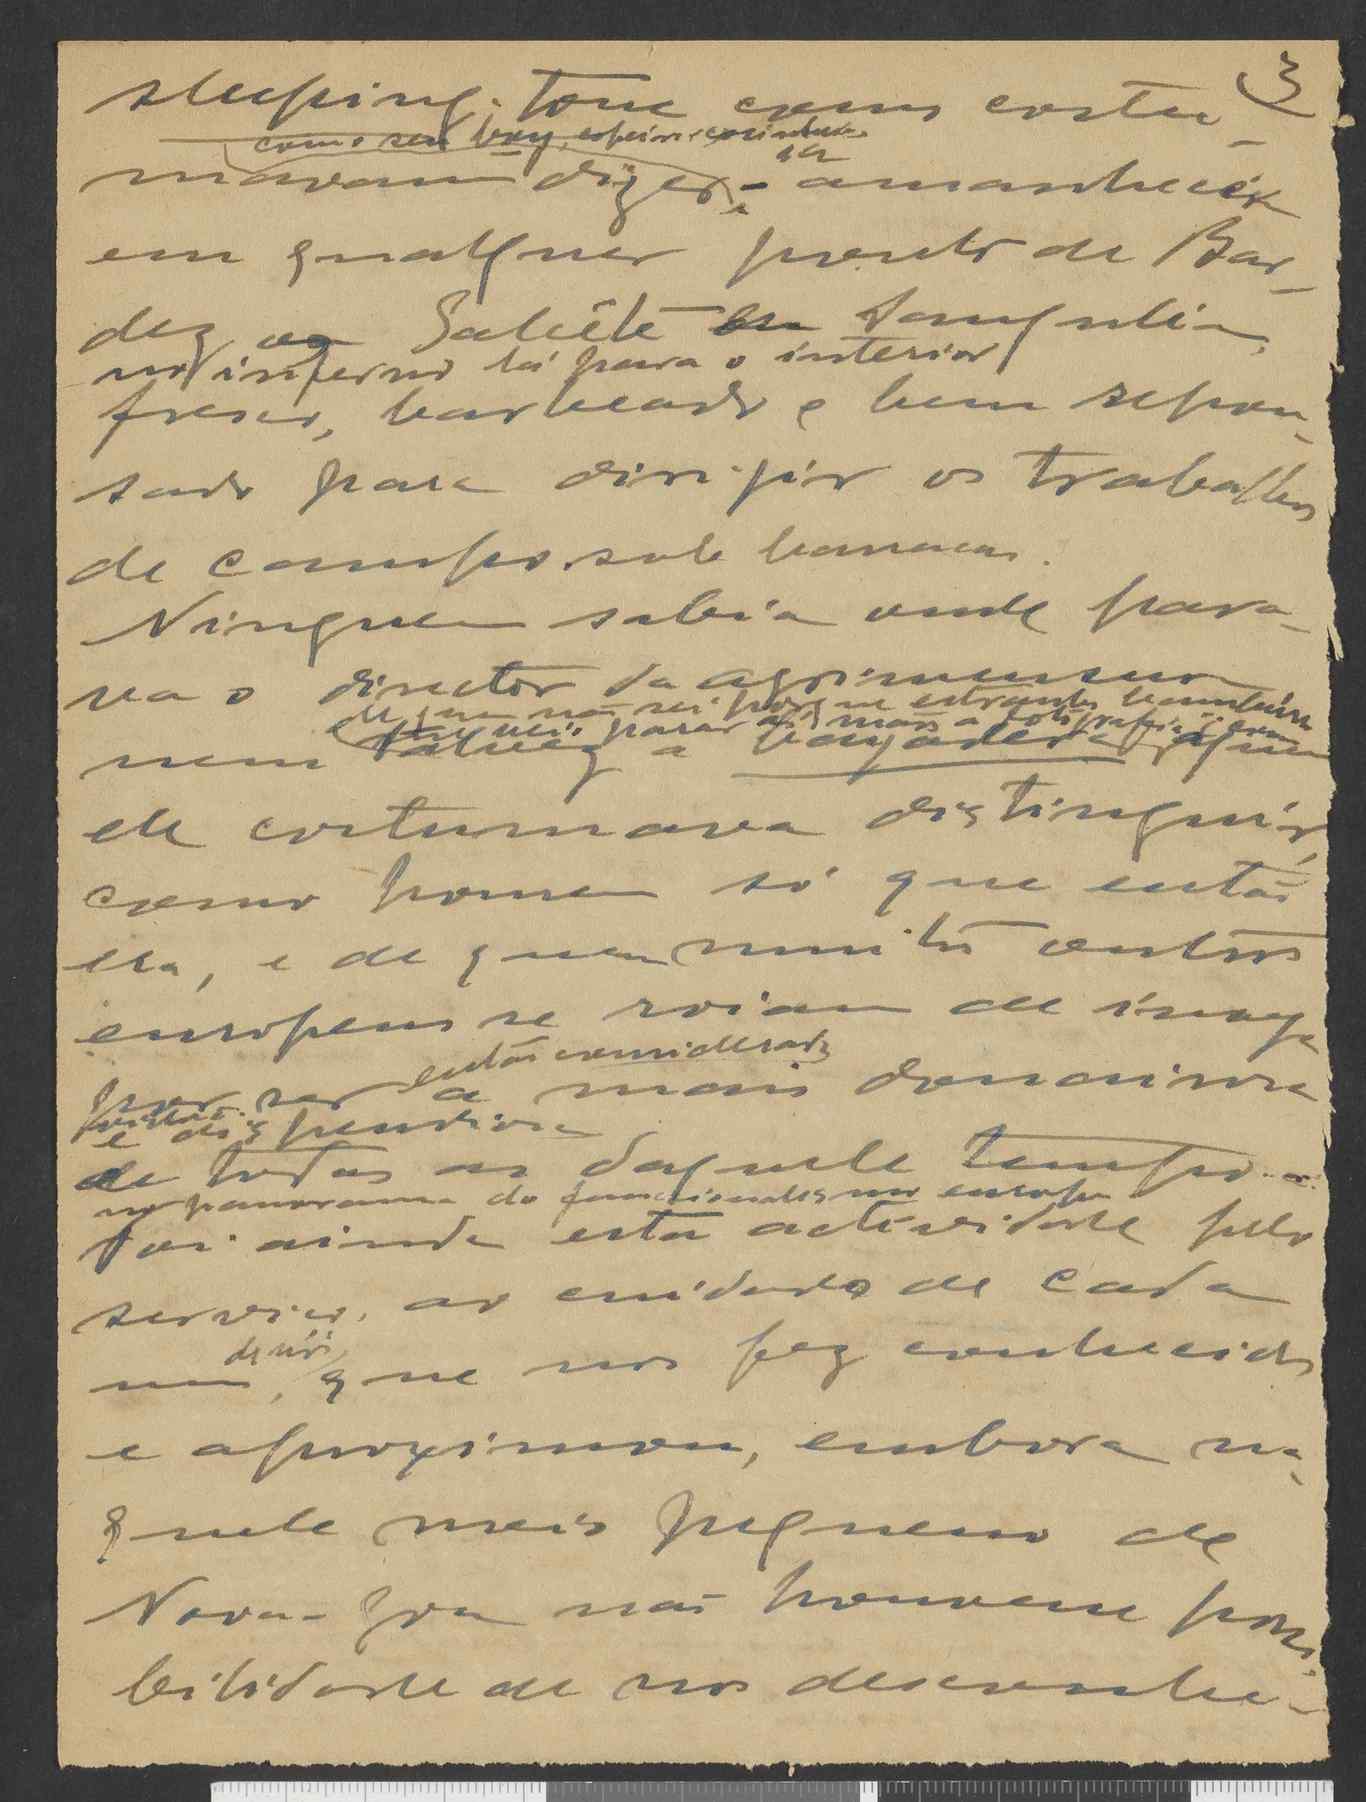 3
sleeping-tone como costu-
como seu boy, espécie
mavam dizer - ia amanhecer
em qualquer ponto de Bar-
dez ou Salcête
no inferno lá para o interior
fresco, barbeado e bem repou-
sado para dirijir os trabalhos
de campo sob barracas.
Ninguem sabia onde para-
va o director da agrimensura
de quem não sei porque
nem talvez a bayadera a quem
ele costumava distinguir,
como homem só que então
era, e de quem muitos outros
europeus se roiam de inveja
então considerada
por ser a mais donairosa
e dispendiosa
de todas as daquele tempo
no panorama do funcionalismo europeu
Foi ainda esta actividade pelo
serviço, ao cuidado de cada
de nós
um, que nos fez conhecidos
e aproximou, embora na-
quele meio pequeno de
Nova-Goa não houvesse possi-
bilidade de nos desconhe-